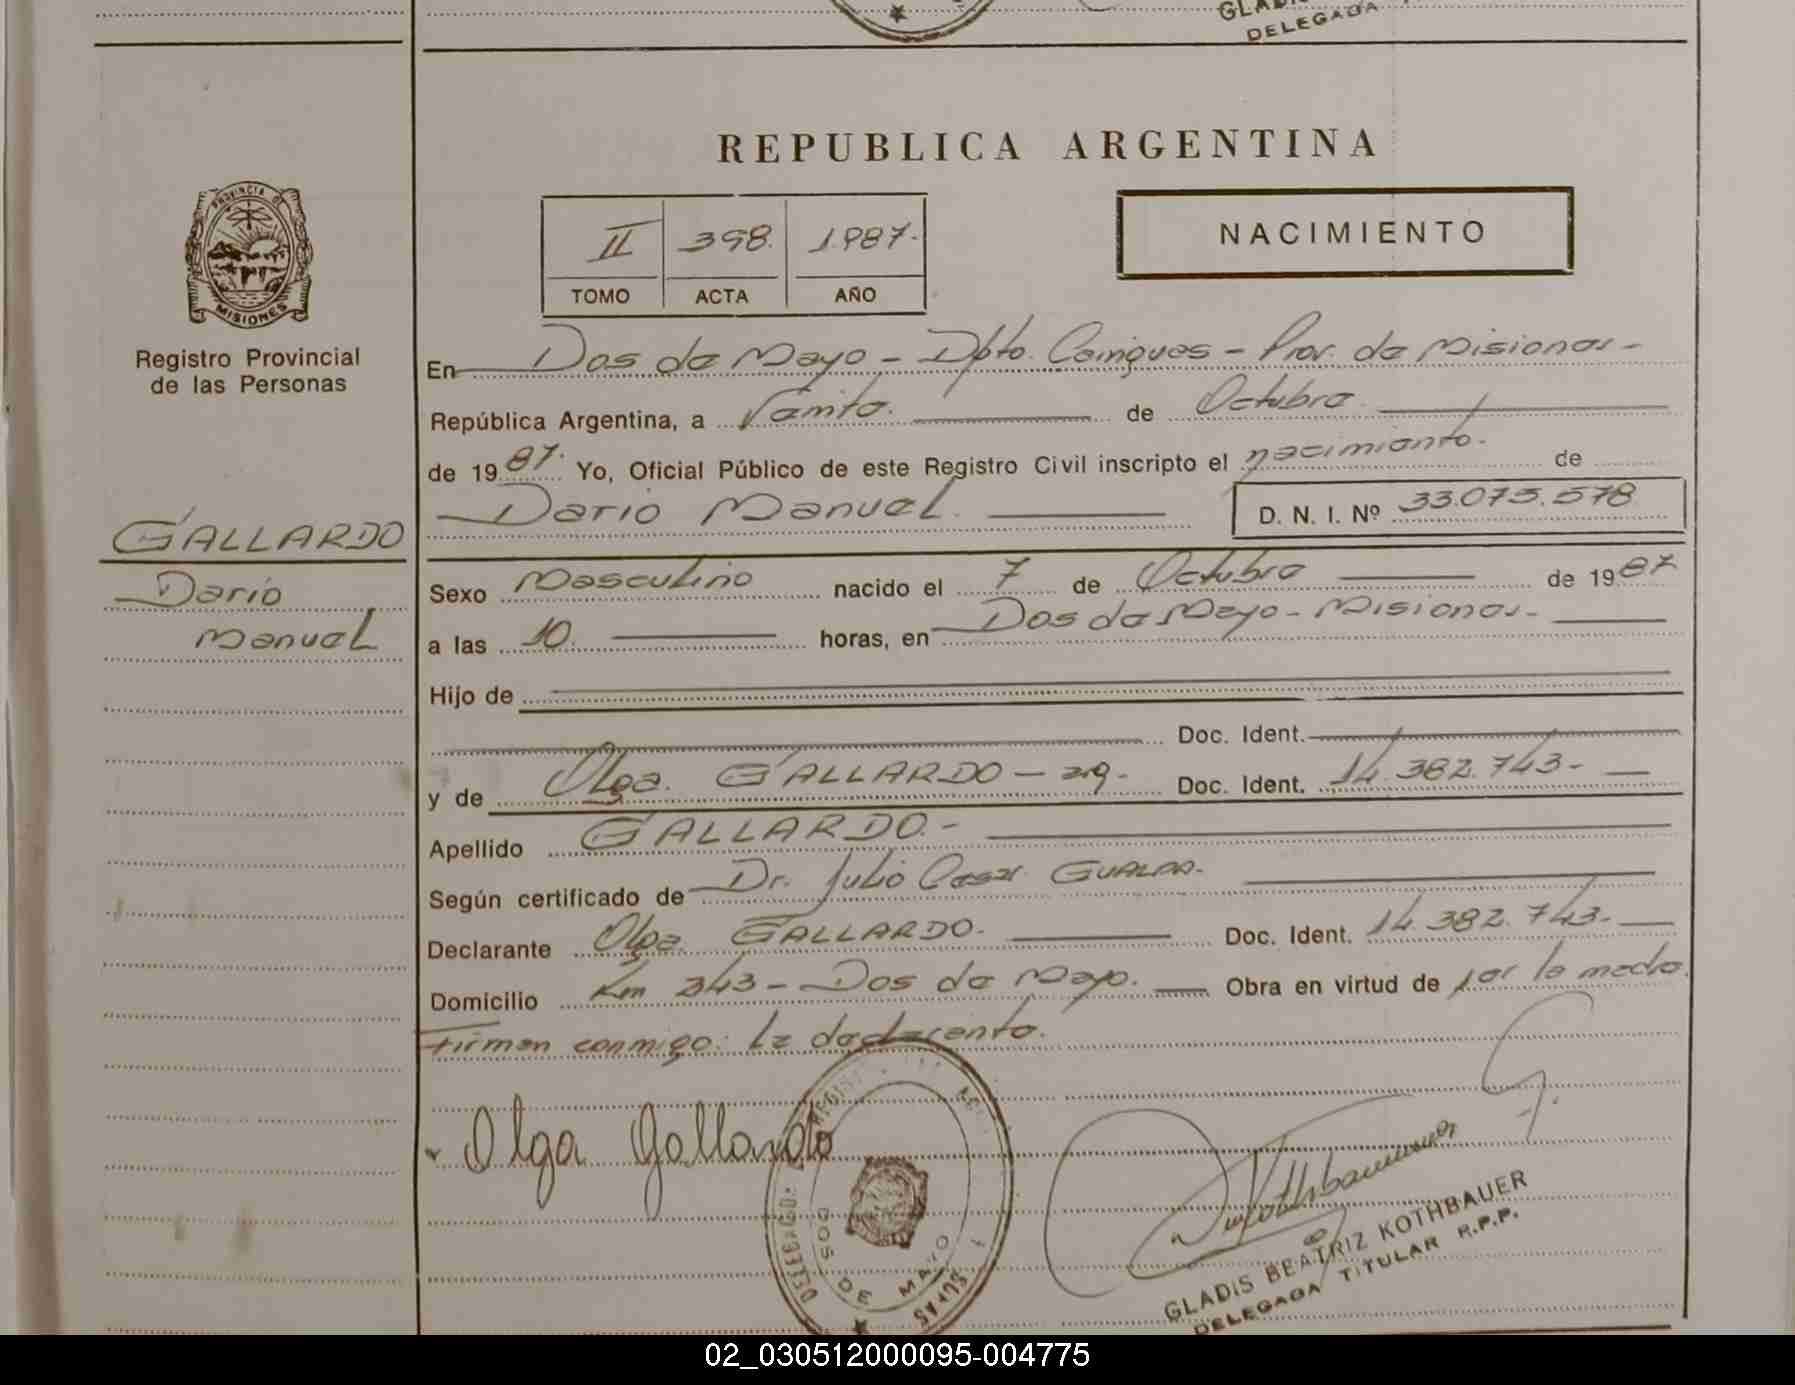 GLADIS
DELEGADA
REPUBLICA ARGENTINA
PROVINCIA DE
MISIONES
Registro Provincial
de las Personas
II 398. 1987.
TOMO ACTA AÑO
NACIMIENTO
En Dos de Mayo - Dpto. Cainguas - Prov. de Misiones -
República Argentina, a Veinte. de Octubre
de 1987. Yo, Oficial Público de este Registro Civil inscripto el nacimiento. de
Dario Manuel. D. N. I. Nº 33.073.578
GALLARDO
Dario
Manuel
Sexo Masculino nacido el 7 de Octubre de 1987
a las 10. horas, en Dos de Mayo - Misiones -
Hijo de
Doc. Ident.
y de Olga. GALLARDO - arg. Doc. Ident. 14.382.743-
Apellido GALLARDO.-
Según certificado de Dr. Julio Cesar
Declarante Olga GALLARDO. Doc. Ident. 14.382.743-
Domicilio Km 243 - Dos de Mayo. Obra en virtud de ser la madre.
Firman conmigo: la declarante.
Olga Gallardo
DOS DE MAYO
GLADIS BEATRIZ KOTHBAUER
DELEGADA TITULAR R.P.P.
02_030512000095-004775